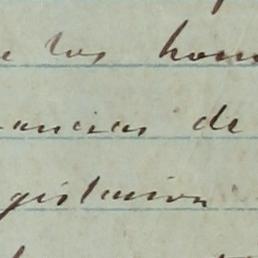 e los hom
ancias de
gislacion